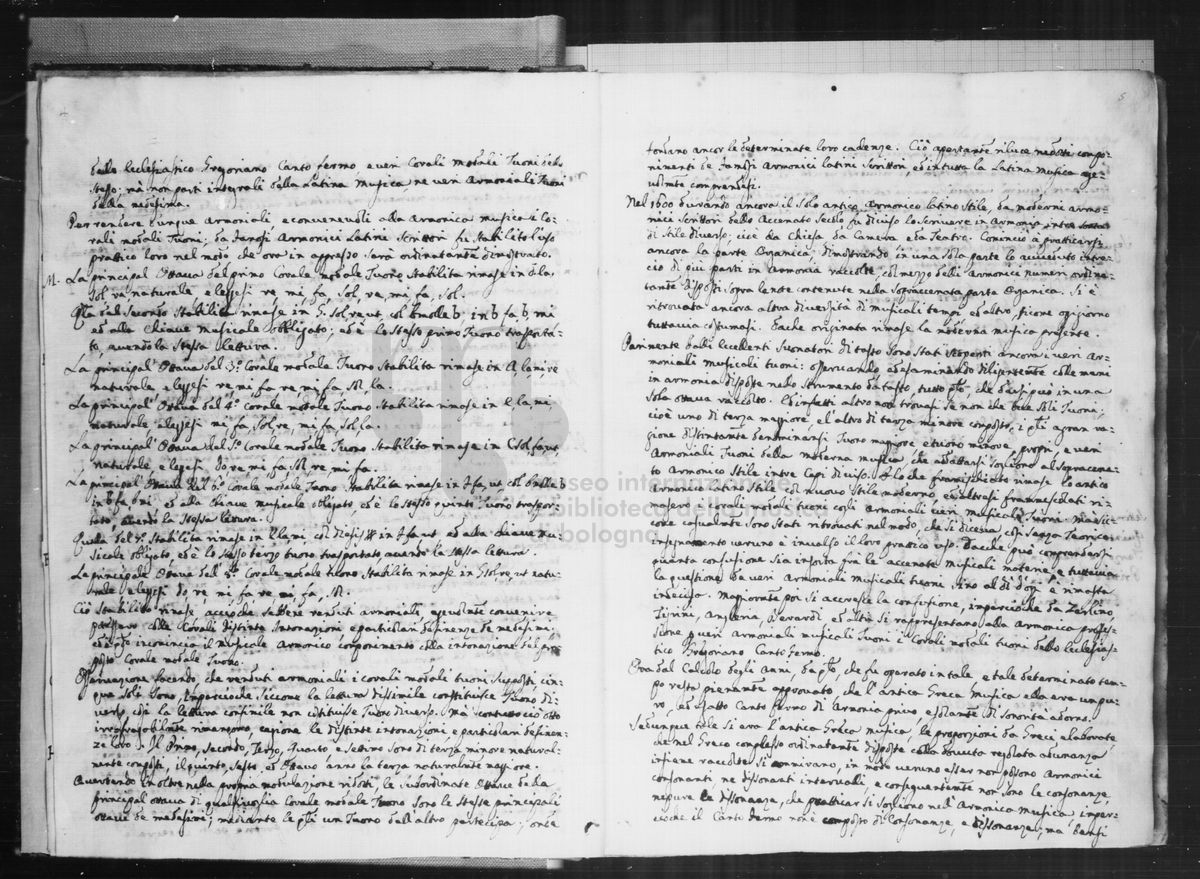 4
dello Ecclesiastico Gregoriano Canto fermo, e veri Corali modali Tuoni dello
stesso: mà non parti integrali della Latina Musica ne veri Armoniali Tuoni
della medesima.
Per rendere dunque armoniali, e convenevoli alla Armonica musica i Co-
rali modali Tuoni; da famosi Armonici Latini Scrittori fu stabilito l'uso
prattico loro nel modo che ora in appresso sarà ordinatamte dimostrato.
M. La principal Ottava del primo Corale modale Tuono stabilita rimase in D la,
sol re naturale e leggesi re mi fa, sol, re, mi, fa, sol.
Qlla del Secondo stabilita rimase in G. sol, re, ut, col bmolle b in b fa, b, mi
ed alla chiave musicale obbligato; ed è lo stesso primo Tuono trasporta-
to, avendo la stessa lettura.
La principal Ottava del 3.º Corale modale Tuono stabilita rimase in A la mi re
naturale e leggesi, re, mi, fa, re, mi, fa, sol la.
La principal Ottava del 4.º Corale modale Tuono stabilita rimase in E la, mi,
naturale e leggesi mi, fa, sol, re, mi, fa, sol, la.
La principal Ottava del 5.º Corale modale Tuono stabilita rimase in C sol, fa, ut
naturale e legesi do, re mi fa, sol re, mi, fa.
La principal Ottava del 6.º Corale modale Tuono stabilita rimase in F fa, ut, col bmolle b
in b fa b mi ed alla chiave musicale obligato ed è lo stesso quinto Tuono traspor-
tato avendo la stessa lettura.
Quella del 7.º stabilita rimase in E la, mi, col Diesis # in F fa ut ed alla chiave mu-
sicale obligato ed è lo stesso terzo tuono trasportato avendo la stessa lettura.
La principale Ottava dell' 8.º Corale modale tuono stabilita rimase in G sol re, ut natu-
rale e legesi do, re, mi, fa, re, mi, fa, sol.
Ciò stabilito rimase, accioche sebbene renduti armoniali, egualmte convenire
potessero colle Corali distinte intonazioni, e particolari desinenze de medesimi;
ed è qto incomincia il musicale Armonico componimento colla intonazione del pro-
posto Corale modale Tuono.
Osservazione facendo, che renduti armoniali i corali modali tuoni supposti cin-
que soli sono, imperciocche siccome la lettura dissimile constituisce Tuono di-
verso così la lettura consimile non costituisce Tuono diverso. Mà contuttociò otto
irrefragabilmte rimangono, cagione le distinte intonazioni, e particolari desinen-
ze loro. Il Primo, Secondo, Terzo, Quarto e Settimo sono di terza minore natural-
mente composti, il quinto, Sesto ed Ottavo anno la terza naturalmte maggiore.
Avvertendo inoltre nella propria modulazione ridotti, le subordinate Ottave della
principal ottava di qualsivoglia Corale modale Tuono sono le stesse principali
ottave de medesimi; mediante le qli un Tuono dall'altro partecipa; onde
5
formano ancor le determinate loro cadenze. Ciò apertamte riluce ne dotti compo-
nimenti de famosi Armonici latini Scrittori, ed in tutta la Latina musica age-
volmte comprendesi.
Nel 1600 durando ancora il solo antico Armonico latino stile, da moderni armo-
nici Scrittori dello Accenato Secolo fù diviso lo scrivere in Armonia in tre sorta
di stile diverso: cioè da Chiesa da Camera e da Teatro. Cominciò a pratticarsi
ancora la parte Organica, dimostrando in una sola parte lo avvenuto intrec-
cio di più parti in Armonia raccolte col mezzo delli Armonici numeri ordina-
tamte disposti sopra le note contenute nella sopraccenata parte Organica. Si è
ritrovata ancora altra diversità di musicali tempi ed altro, si come ogigiorno
tuttavia costumasi. E che originata rimase la moderna musica presente.
Parimente dalli eccellenti Suonatori di tasto sono stati scoperti ancora i veri ar-
moniali musicali tuoni: osservando, ed esaminando diligentemte colle mani
in armonia disposte nello strumento da tasto, tutto qto, che darsi può in una
sola ottava raccolto. Ed infatti altro non trovasi se non che due soli Tuoni;
cioè uno di terza maggiore, e l'altro di terza minore composto, i qli a gran ra-
gione distintamte denominansi Tuono maggiore e tuono minore. I proprj, e veri
Armoniali Tuoni della moderna musica che addattarsi sogliono al sopraccena-
to Armonico Stile in tre Capi diviso. E lo che frammischiato rimase lo antico
Armonico Latino stile col nuovo stile moderno, ed altresì frammischiati ri-
masero i Corali modali tuoni cogli Armoniali veri musicali Tuoni. Mà sic-
come casualmte sono stati ritrovati nel modo, che si diceva, così senza Teorico
insegnamento veruno è invalso il loro prattico uso. Dacchè può comprendersi
quanta confusione sia insorta frà le accenate musicali materie, e tuttavia
la questione de veri Armoniali Musicali tuoni sino al dì d'ogi è rimasta
indecisa. Magiormte poi si accresce la confusione, imperciocche da Zarlino,
Tigrini, Angleria, Berardi, ed altri si rappresentano alla Armonica profes-
sione p veri Armoniali musicali Tuoni i Corali modali tuoni dello Ecclesias-
tico Gregoriano Canto fermo.
Ora dal Calcolo degli Anni, da qto, che fu operato in tale, e tale determinato tem-
po resta pienamte approvato, che l'antica Greca musica ella era un pu-
ro, ed esatto Canto fermo di Armonia privo e solamte di sonorità adorno.
Se dunque tale si era l'antica Greca musica, le proporzioni da Greci elaborate,
che nel Greco complesso ordinatamte disposte colla dovuta regolata adunanza
insieme raccolte si ammirano, in modo veruno esser non possono Armonici
consonanti ne dissonanti intervalli, e conseguentemte non sono le consonanze,
neppure le dissonanze, che pratticar si sogliono nell'Armonica musica, imper-
cioche il Canto fermo non è composto di Consonanze, e dissonanze; ma bensì
museo internazionale
e biblioteca della musica
di bologna